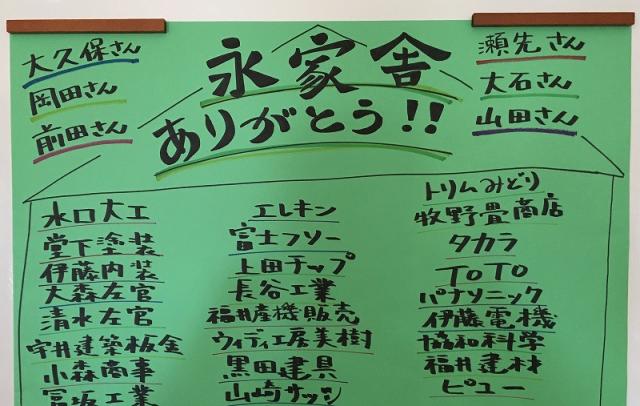 大久保さん
岡田さん
前田さん
永家舎
ありがとう!!
瀬先さん
大石さん
山田さん
水口大工
堂下塗装
伊藤内装
大森左官
清水左官
宇井建築板金
小森商事
富坂工業
エレキン
富士フソー
上田チップ
長谷工業
福井産機販売
ウィディ工房美樹
黒田建具
山崎サッシ
トリムみどり
牧野畳商店
タカラ
TOTO
パナソニック
伊藤電機
協和科学
福井建材
ピュー